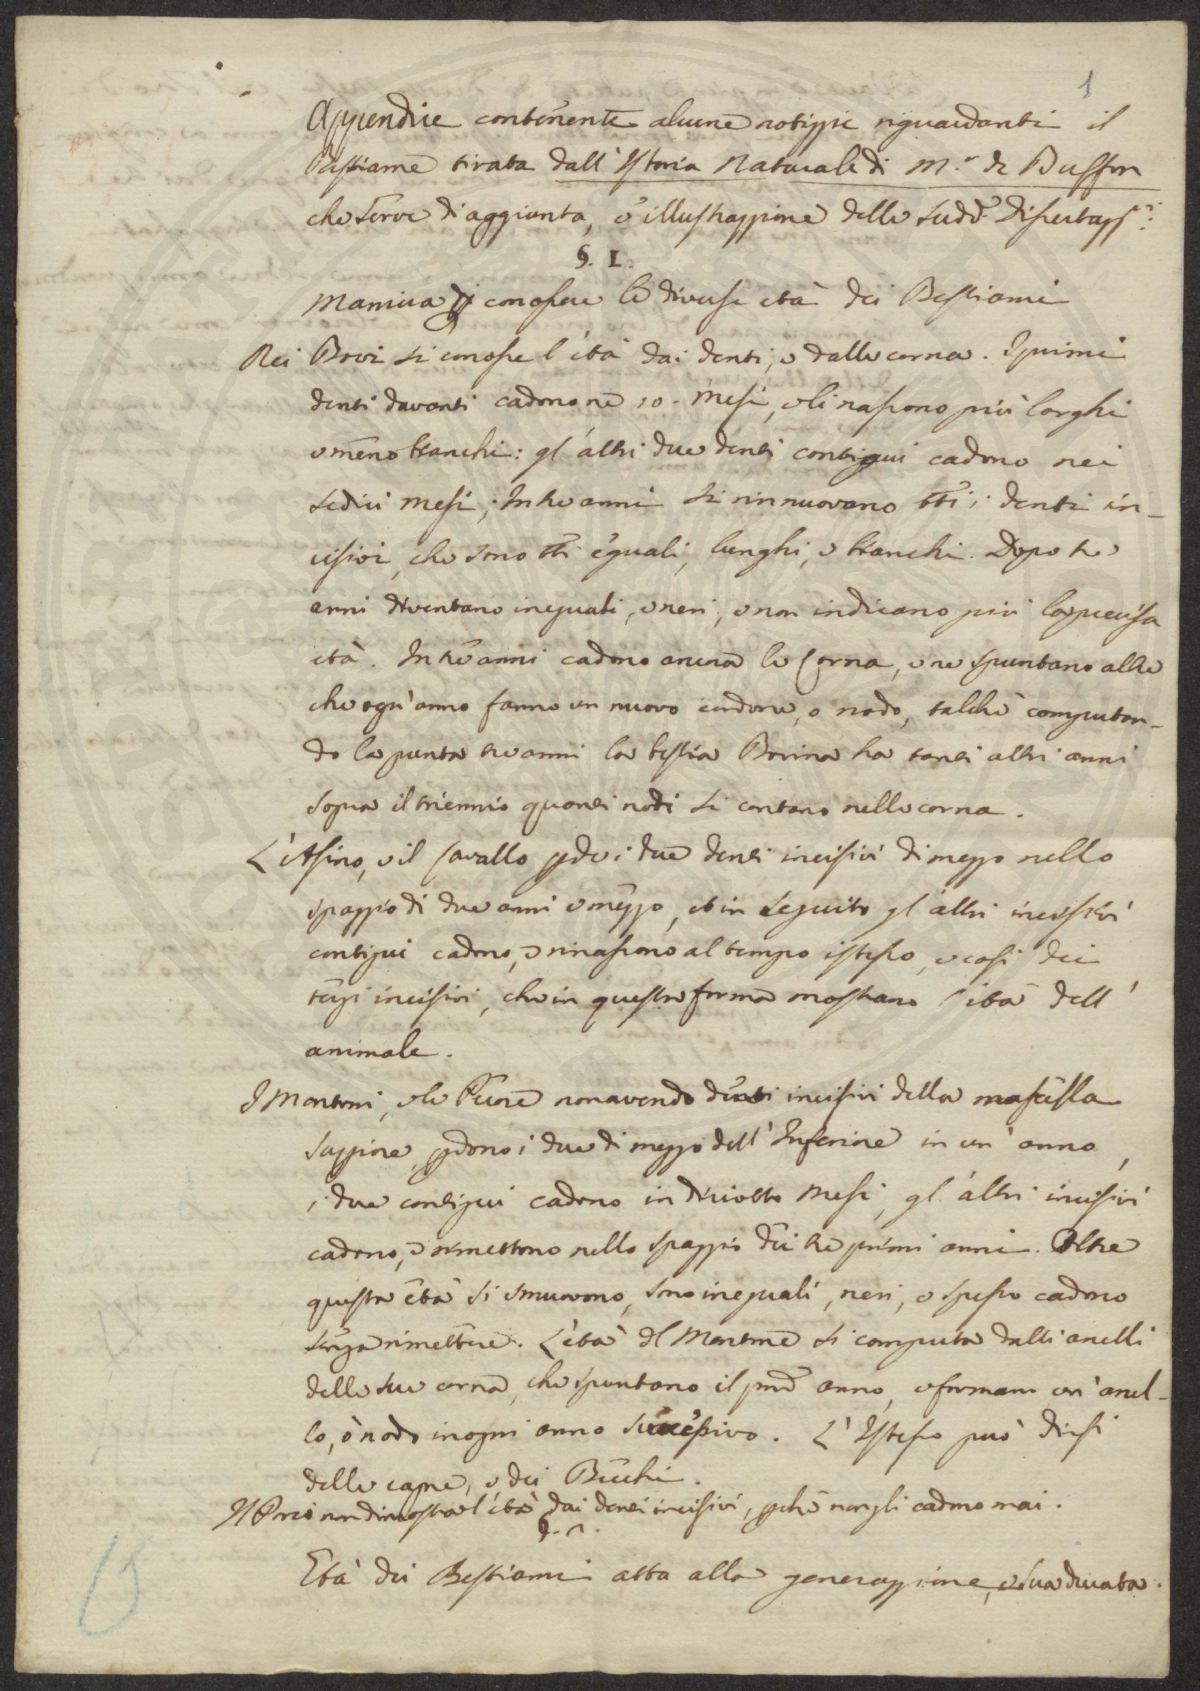 1
Appendice contenente alcune notizzie riguardanti il
Bestiame tirata dall'Istoria Naturale di M.r de Buffon
che serve di aggiunta, e illustrazzione delle sudd.e Dissertazz.ni:
§. I.
Maniera di conoscere le diverse età dei Bestiami
Nei Bovi si conosce l'età dai denti, e dalle corna. I primi
denti davanti cadono ne 10. mesi, e li nascono più larghi
e meno bianchi: gl'altri due denti contigui cadono nei
sedici mesi; In tre anni si rinnuovano tti i denti in-
cisivi, che sono tti eguali, lunghi, e bianchi. Dopo tre
anni diventano ineguali, e neri, e non indicano più la precisa
età. In tre anni cadono ancora le Corna, e ne spuntano altre
che ogn'anno fanno un nuovo cordone, o nodo, talchè computan-
do la punta tre anni la bestia Bovina ha tanti altri anni
sopra il triennio quanti nodi si contano nelle corna.
L'Asino, e il Cavallo pde i due denti incisivi di mezzo nello
spazzio di due anni e mezzo, et in seguito gl'altri incisivi
contigui cadono, e rinascono al tempo istesso, e così dei
terzi incisivi, che in questa forma mostrano l'età dell'
animale.
I Montoni, e le Pecore non avendo denti incisivi della mascella
suppiore, pdono i due di mezzo dell'Inferiore in un'anno,
i due contigui cadono in diciotto mesi, gl'altri incisivi
cadono, e rimettono nello spazzio dei tre primi anni. Oltre
questa età si smuovono, sono ineguali, neri, e spesso cadono
senza rimettere. L'età del Montone si computa dalli anelli
delle sue corna, che spuntano il pmo anno, e formano un'anel-
lo, ò nodo in ogni anno successivo. L'Istesso può dirsi
delle capre, e dei Becchi.
Il Porco non dimostra l'età dai denti incisivi, pchè non gli cadono mai.
§. 2.
Età dei Bestiami atta alla generazzione, e sua durata.